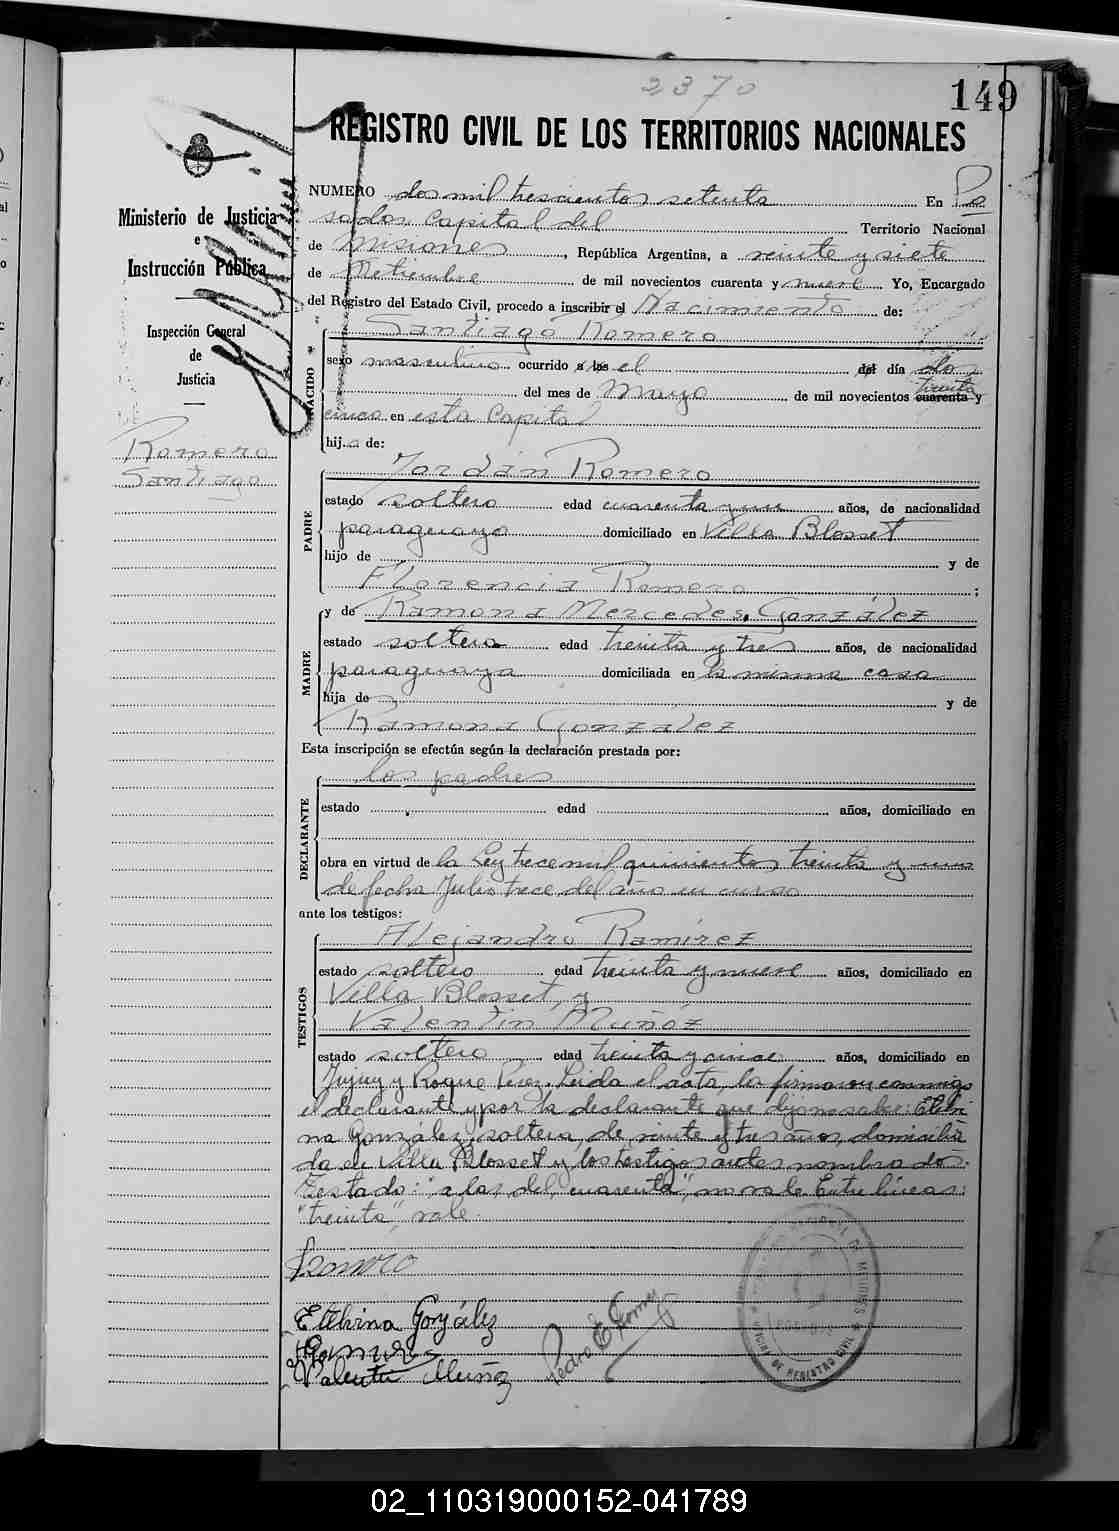 2370
149
REGISTRO CIVIL DE LOS TERRITORIOS NACIONALES
Ministerio de Justicia
e
Instrucción Pública
Inspección General
de
Justicia
Romero
Santiago
NUMERO dos mil trescientos setenta En Po
sadas Capital del Territorio Nacional
de Misiones, República Argentina, a veinte y siete
de Setiembre de mil novecientos cuarenta y nueve Yo, Encargado
del Registro del Estado Civil, procedo a inscribir el Nacimiento de:
NACIDO
Santiago Romero
sexo masculino ocurrido a las el del día do
del mes de Mayo de mil novecientos cuarenta y treinta
cinco en esta Capital
hij o de:
PADRE
Jordán Romero
estado soltero edad cuarenta y un años, de nacionalidad
paraguayo domiciliado en Villa Blosset
hijo de y de
Florencia Romero;
MADRE
y de Ramona Mercedes González
estado soltera edad treinta y tres años, de nacionalidad
paraguaya domiciliada en la misma casa
hija de y de
Ramona González
Esta inscripción se efectúa según la declaración prestada por:
DECLARANTE
los padres
estado edad años, domiciliado en
obra en virtud de la Ley trece mil quinientos treinta y uno
de fecha Julio trece del año en curso
ante los testigos:
TESTIGOS
Alejandro Ramírez
estado soltero edad treinta y nueve años, domiciliado en
Villa Blosset, y
Valentín Muñóz
estado soltero edad treinta y cinco años, domiciliado en
Jujuy y Roque Perez. Leida el acta, la firmaron conmigo
el declarante y por la declarante que dijo no saber: Etelvi
na González, soltera, de veinte y tres años, domicilia
da en Villa Blosset y los testigos antes nombrados.
Testado: "a las, del, cuarenta", no vale. Entre líneas:
"treinta", vale.
Romero
Etelvina González
Ramirez
Valentin Muñoz
REGISTRO CIVIL
02_110319000152-041789